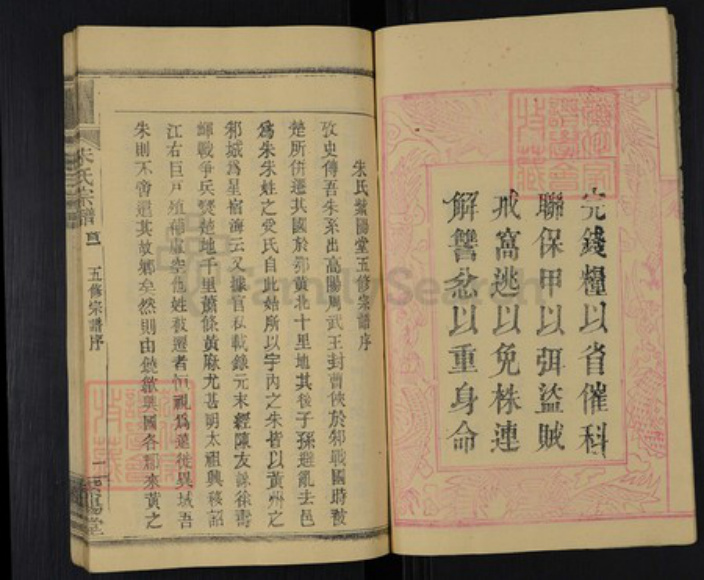 完錢糧以省催科
聯保甲以弭盜賊
戒窩逃以免株連
解讐忿以重身命
朱氏紫陽堂五修宗譜序
攷史傳吾朱系出高陽周武王封曹俠於邾戰國時被
楚所併遷其國於邾黃北十里地其後子孫避亂去邑
為朱朱姓之受氏自此始所以宇內之朱皆以黃州之
邾城為星宿海云又據官私載錄元末經陳友諒徐壽
輝戰爭兵燹楚地千里蕭條黃麻尤甚明太祖興移詔
江右巨戶殖補虛空他姓被遷者恒視為遠徙異域吾
朱則不啻還其故鄉矣然則由饒歙興國各郡來黃之
朱氏宗譜
五修宗譜序
一
紫陽堂
FamilySearch